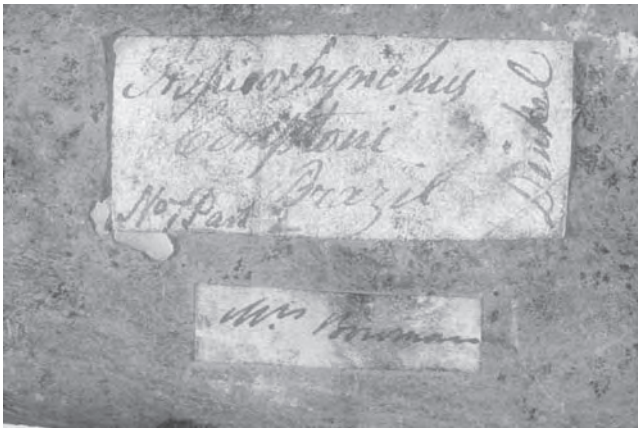 Aspidorhynchus
Comptoni
Brazil
No 1 Part 2
Dinkel
Mrs Bowman